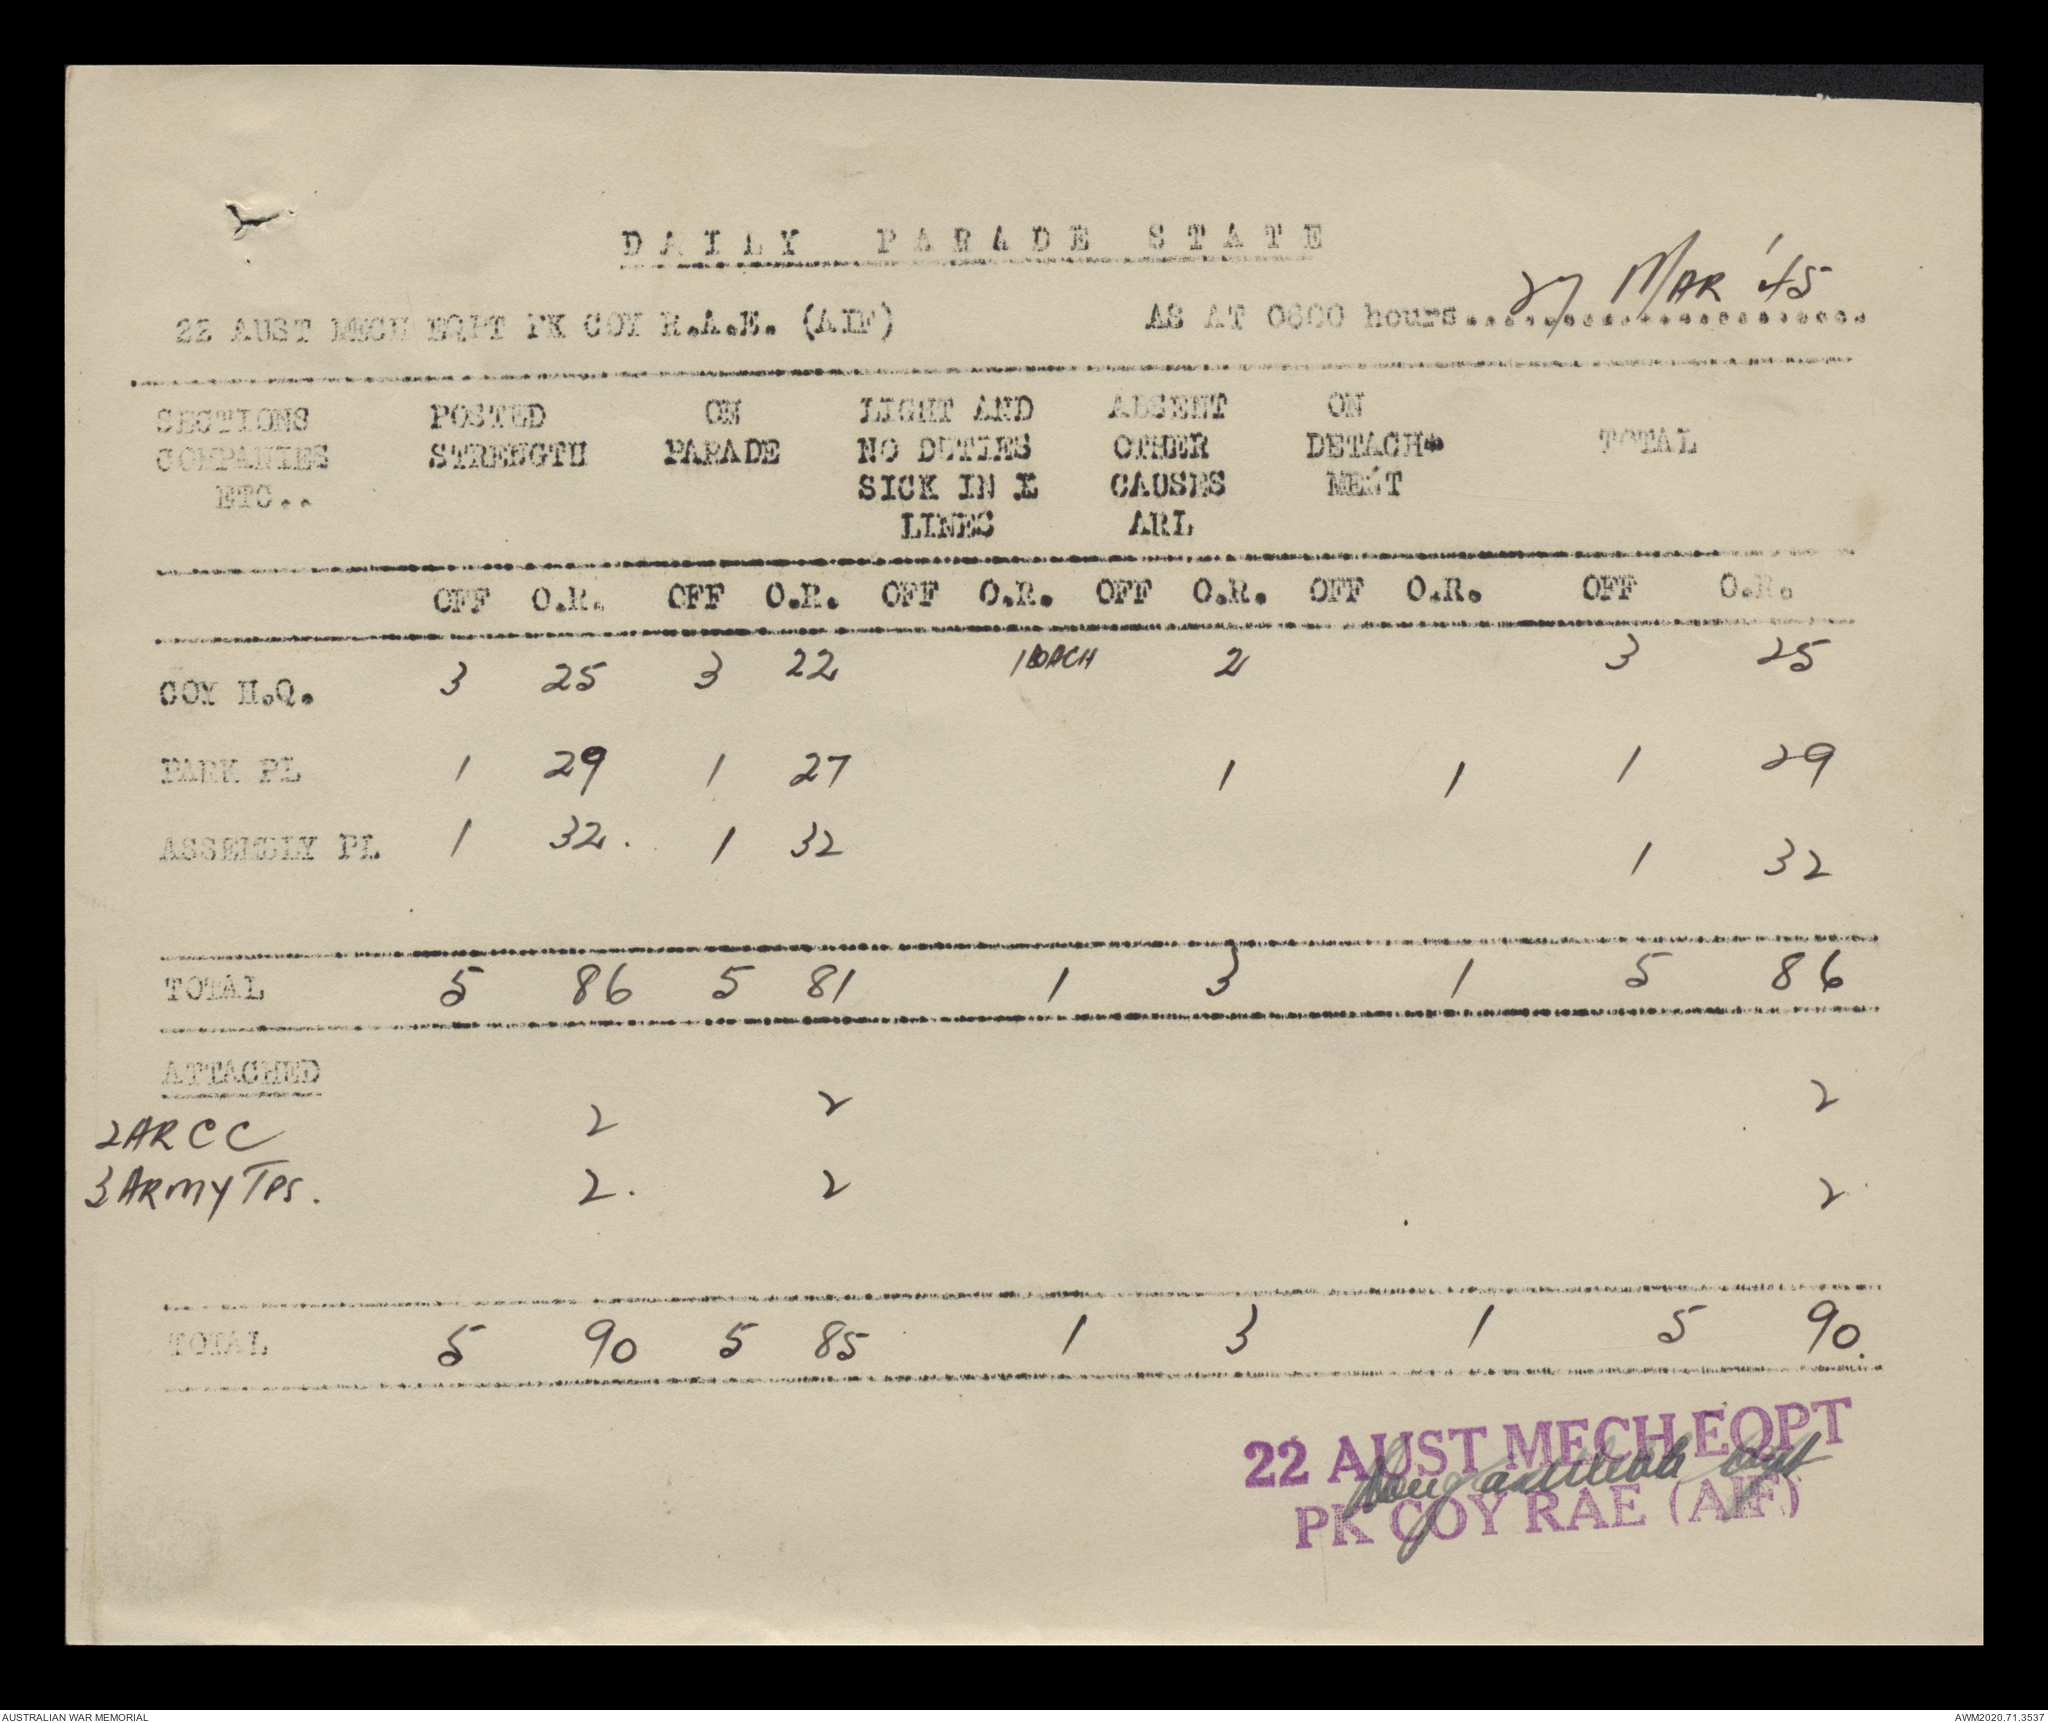 DAILY PARADE STATE
22 AUST MECH EQPT PK COY R.A.E. (AIF) AS AT 0600 hours 27 MAR '45
SECTIONS POSTED ON LIGHT AND ABSENT ON
COMPANIES STRENGTH PARADE NO DUTIES OTHER DETACH- TOTAL
ETC.. SICK IN L CAUSES MENT
LINES ARL
OFF O.R. OFF O.R. OFF O.R. OFF O.R. OFF O.R. OFF O.R.
COY H.Q. 3 25 3 22 1 2 3 25
PARK PL 1 29 1 27 1 1 1 29
ASSEMBLY PL 1 32. 1 32 1 32
TOTAL 5 86 5 81 1 3 1 5 86
ATTACHED
2 ARCC 2 2 2
3 ARMY TPS. 2. 2 2
TOTAL 5 90 5 85 1 3 1 5 90.
22 AUST MECH EQPT
PK COY RAE (AIF)
AUSTRALIAN WAR MEMORIAL AWM2020.71.3537